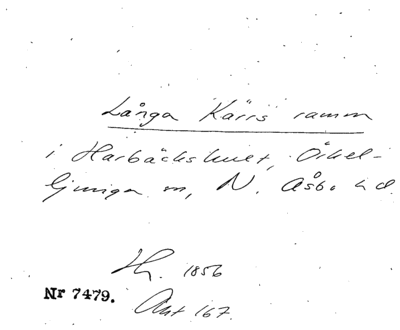 Långa Kärrs ramm
i Harbäckshult, Örkel-
ljunga sn, N. Åsbo hd
Hg. 1856
Nr 7479.
Akt 167.